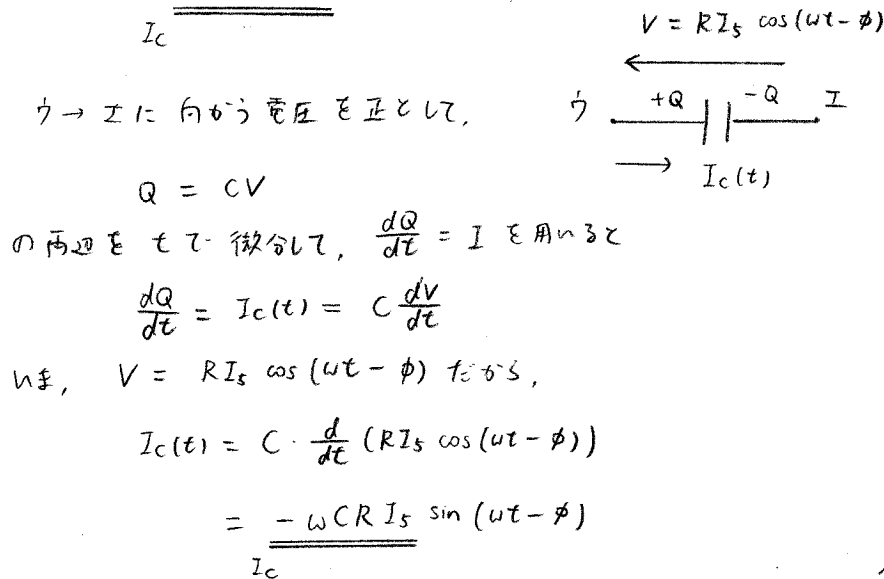 I_C
V = RI_5 cos(ωt - φ)
ウ +Q -Q エ
I_C(t)
ウ → エに向かう電圧を正として,
Q = CV
の両辺を t で微分して, dQ/dt = I を用いると
dQ/dt = I_C(t) = C dV/dt
いま, V = RI_5 cos(ωt - φ) だから,
I_C(t) = C · d/dt (RI_5 cos(ωt - φ))
= - ωCRI_5 sin(ωt - φ)
I_C